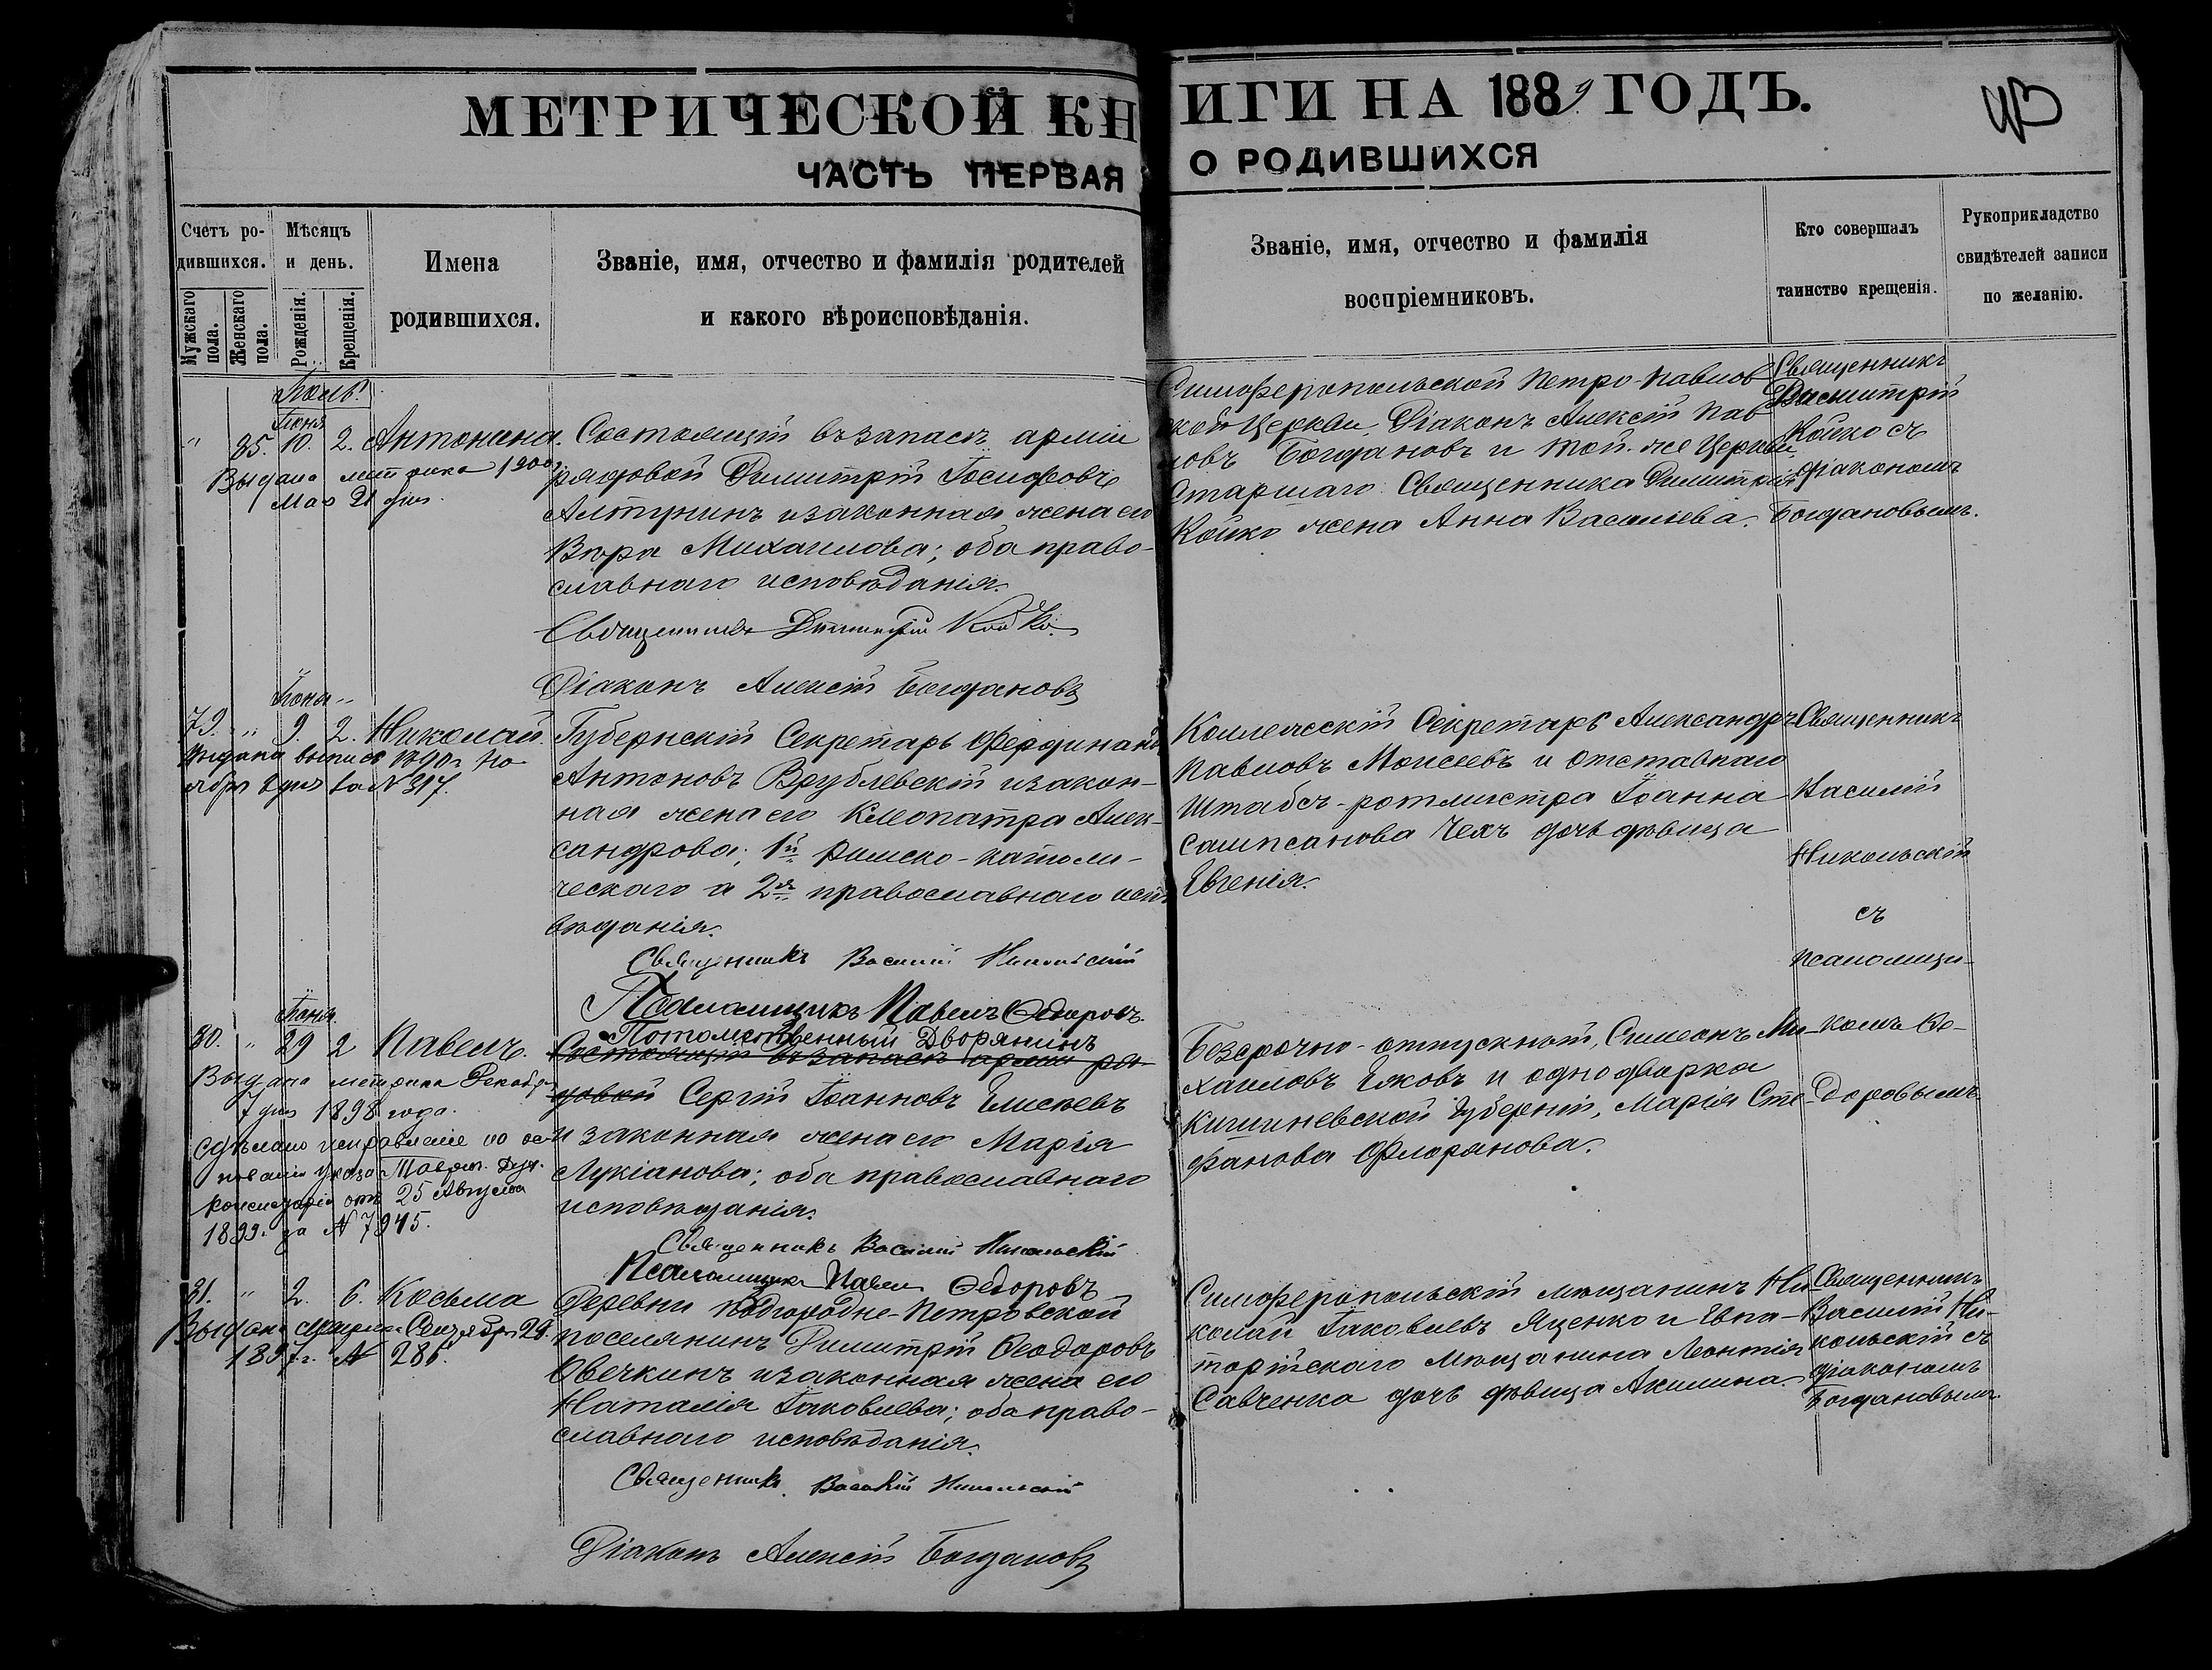 МЕТРИЧЕСКОЙ КНИГИ НА 1889 ГОДЪ.
ЧАСТЬ ПЕРВАЯ О РОДИВШИХСЯ
Счетъ родившихся.
Мужскаго пола.
Женскаго пола.
Мѣсяцъ и день.
Рожденія.
Крещенія.
Имена
родившихся.
Званіе, имя, отчество и фамилія родителей
и какого вѣроисповѣданія.
Званіе, имя, отчество и фамилія
воспріемниковъ.
Кто совершалъ
таинство крещенія.
Рукоприкладство
свидѣтелей записи
по желанію.
Іюль.
Іюня
" 85. 10. 2. Антонина.
Выдана метрика 1900
Мая 21 дня.
Состоящій въ запасѣ арміи
рядовой Димитрій Іосифовъ
Алтунинъ и законная жена его
Вѣра Михаилова; оба право-
славнаго исповѣданія.
Священникъ Димитрій Койко.
Діаконъ Алексій Богдановъ
Симферопольской Петро-Павлов-
ской Церкви Діаконъ Алексій Пав-
ловъ Богдановъ и той-же Церкви
Старшаго Священника Димитрія
Койко жена Анна Васильева.
Священникъ
Димитрій
Койко съ
діакономъ
Богдановымъ.
Іюня
79. " 9. 2. Николай.
Выдана выпись 1890 г. Но-
ября дня за N 317.
Губернскій Секретарь Фердинандъ
Антоновъ Врублевскій и закон-
ная жена его Клеопатра Алек-
сандрова; 1й Римско-католи-
ческаго а 2я православнаго испо-
вѣданія.
Священникъ Василій Никольскій
Псаломщикъ Павелъ Ѳедоровъ.
Коллежскій Секретарь Александръ
Павловъ Моисеевъ и отставнаго
Штабсъ-ротмистра Іоанна
Сампсанова Чехъ дочь дѣвица
Евгенія.
Священникъ
Василій
Никольскій
съ
псаломщи-
комъ Ѳе-
доровымъ.
Іюня.
80. " 29 2 Павелъ.
Выдана метрика Декабря
7 дня 1898 года.
Сдѣлано исправленіе по ос-
нованію указа Таврич. Дух.
Консисторіи отъ 25 Августа
1899 г. за N 7945.
Потомственный Дворянинъ
Состоящій въ запасѣ арміи ря-
довой Сергій Іоанновъ Елисѣевъ
и законная жена его Марія
Лукіанова; оба православнаго
исповѣданія.
Священникъ Василій Никольскій
Псаломщикъ Павелъ Ѳедоровъ
Безсрочно-отпускной, Симеонъ Ми-
хаиловъ Ежовъ и однодворка
Кишиневской Губерніи, Марія Сте-
фанова Флорянова.
81. " 2. 6. Косьма
Выдана метрика Сентября 29.
1897 г. N 286.
Деревни Подгородне-Петровской
поселянинъ Димитрій Ѳеодоровъ
Овечкинъ и законная жена его
Наталія Іаковлева; оба право-
славнаго исповѣданія.
Священникъ Василій Никольскій
Діаконъ Алексій Богдановъ
Симферопольскій мѣщанинъ Ни-
колай Іаковлевъ Яценко и Евпа-
торійскаго мѣщанина Леонтія
Савченка дочь дѣвица Акилина.
Священникъ
Василій Ни-
кольскій съ
діакономъ
Богдановымъ.